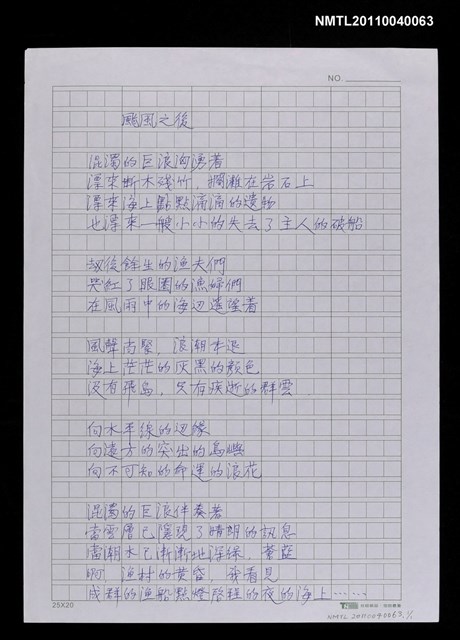 NMTL20110040063
NO.
颱風之後
混濁的巨浪洶湧著
漂來斷木殘竹，擱灘在岩石上
漂來海上點點滴滴的遺物
也漂來一艘小小的失去了主人的破船
劫後餘生的漁夫們
哭紅了眼圈的漁婦們
在風雨中的海辺遙望著
風聲尚緊，浪潮未退
海上茫茫的灰黑的顏色
沒有飛鳥，只有疾逝的群雲
向水平線的边緣
向遠方的突出的島嶼
向不可知的命運的浪花
混濁的巨浪伴奏著
當雲層已隱現了晴朗的訊息
當潮水已漸漸地深綠，蔚藍
啊，漁村的黃昏，我看見
成群的漁船點燈啓程的夜的海上……
25X20
NMTL20110040063 1/1